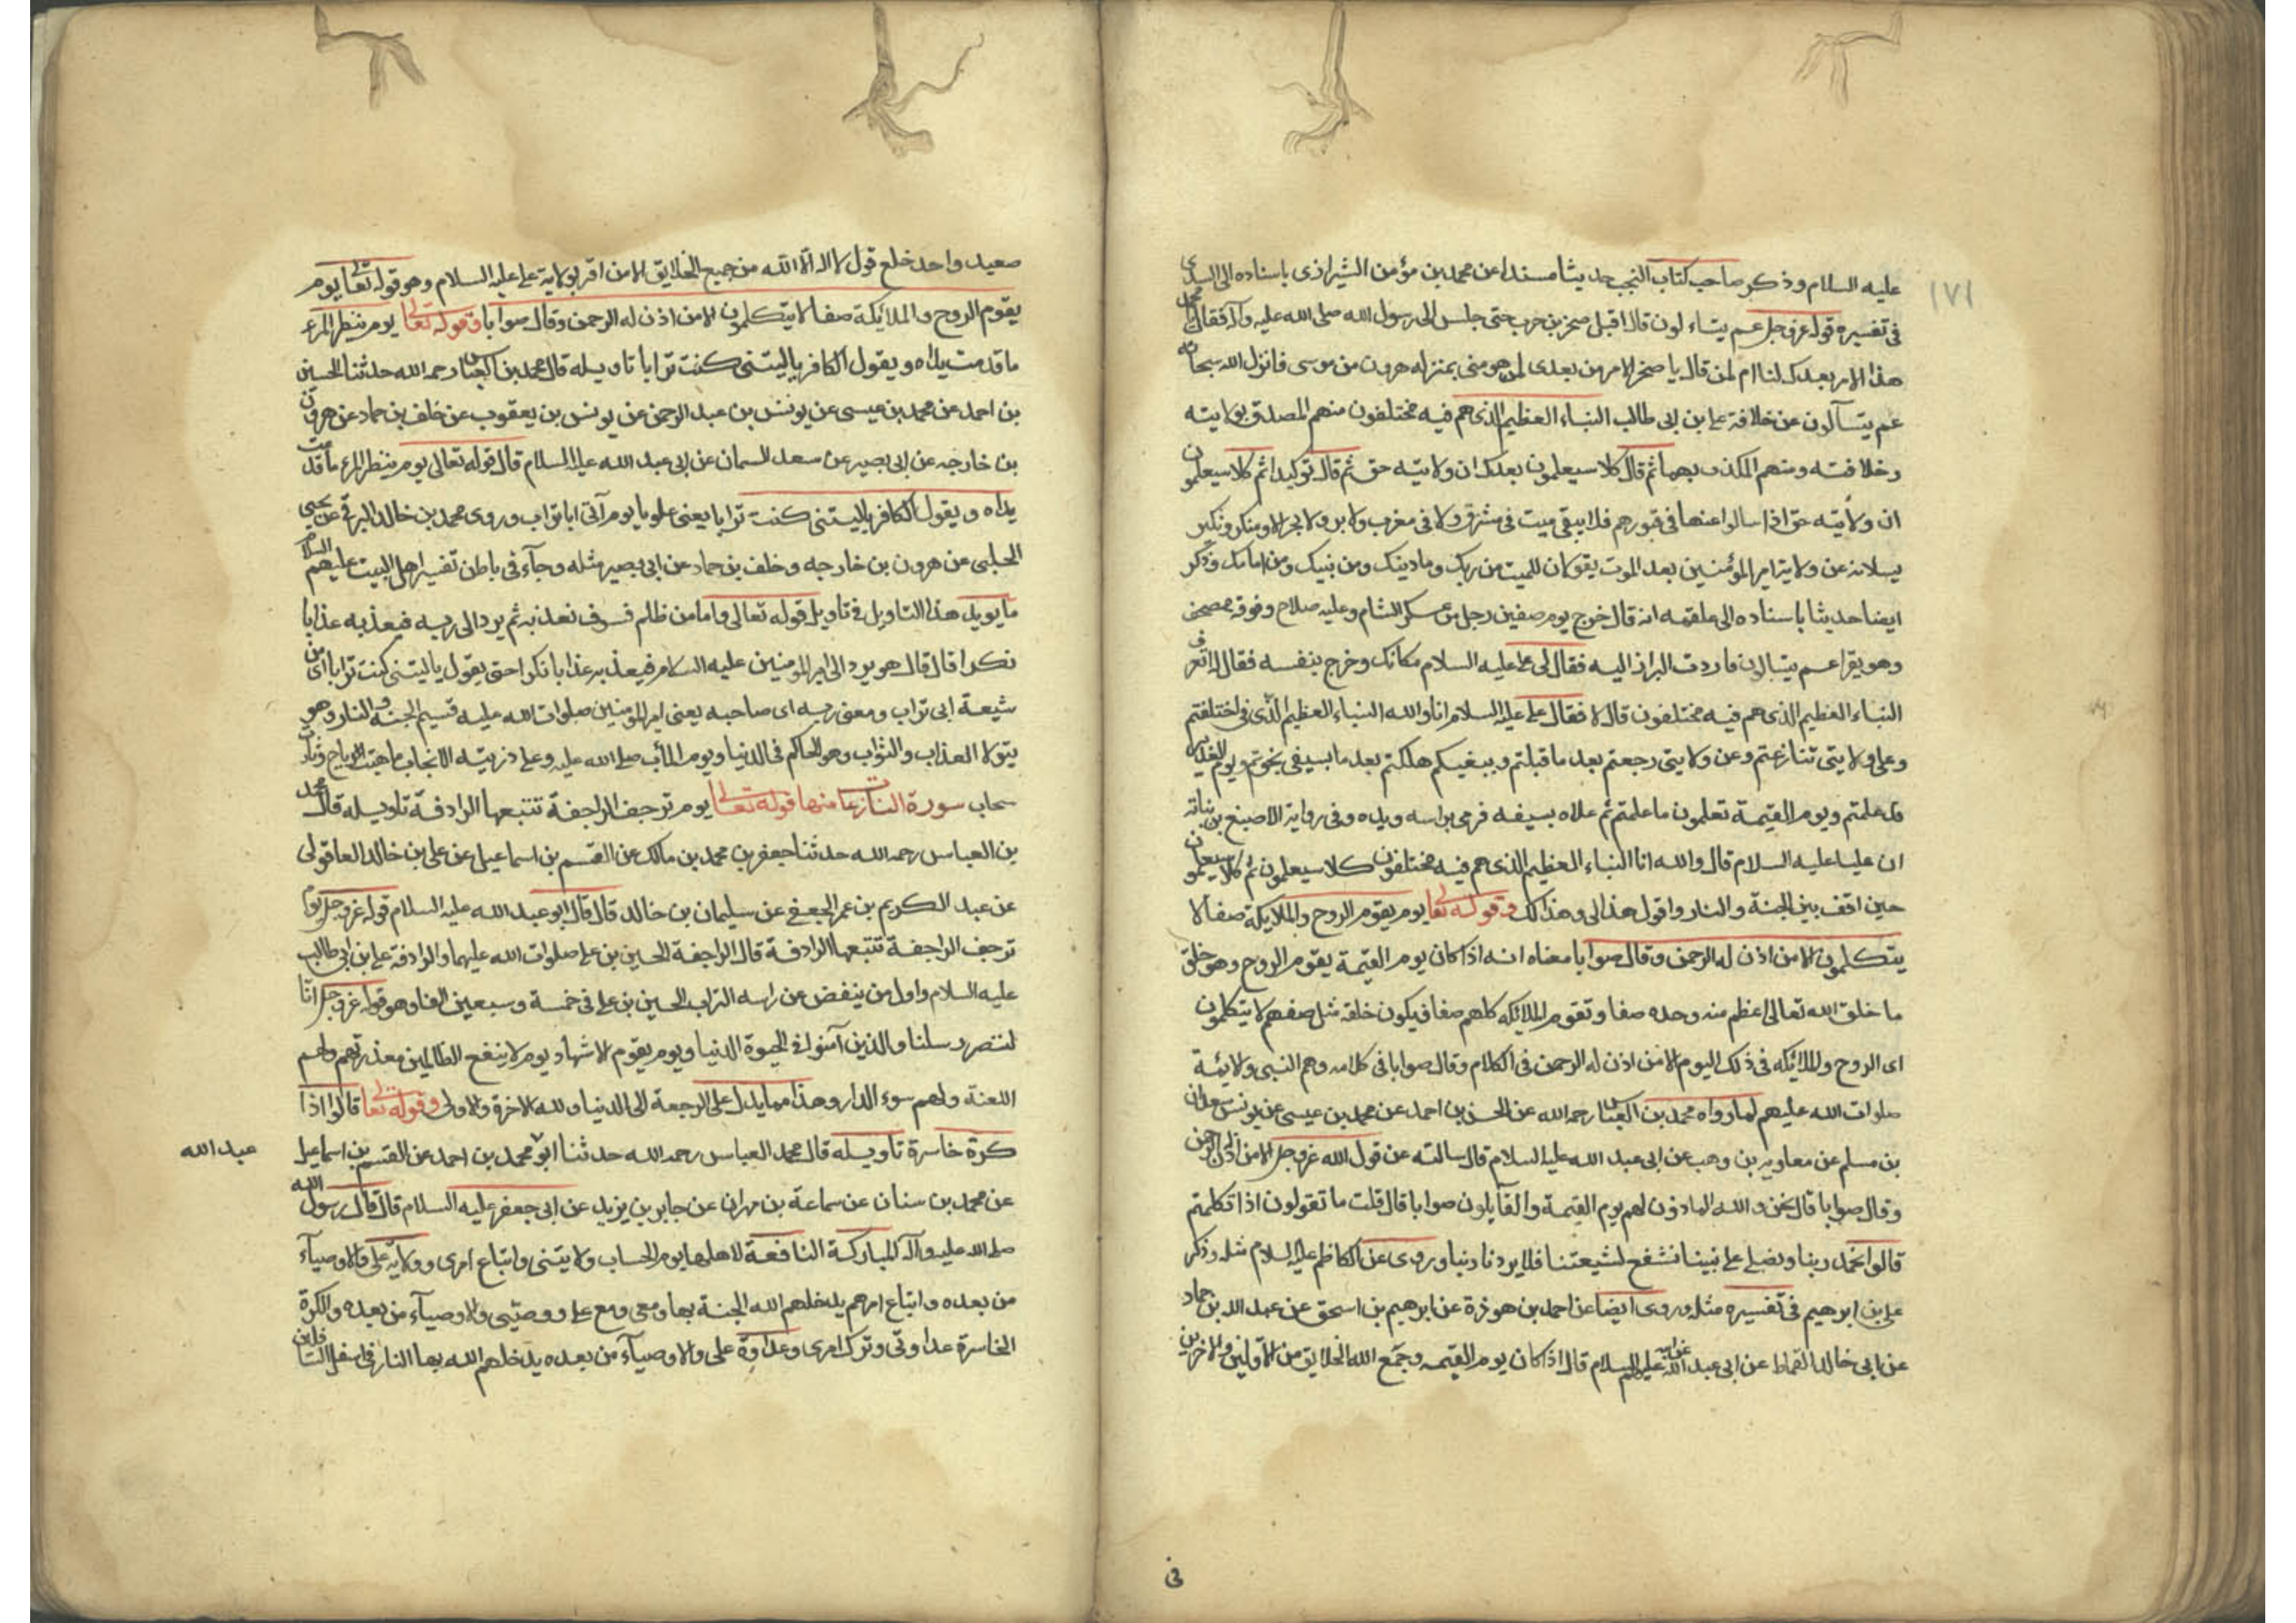 ١٧١
عليه السلام وذكر صاحب كتاب النخب حديثا مسندا عن محمد بن مؤمن الشيرازى باسناده الى السدى
فى تفسيره قوله عز وجل عم يتساءلون قال اقبل صخر بن حرب حتى جلس الى رسول الله صلى الله عليه وآله فقال يا محمد
هذا الامر بعدك لنا ام لمن قال يا صخر الامر من بعدى لمن هو منى بمنزلة هرون من موسى فانزل الله سبحانه
عم يتسآلون عن خلافة على ابن ابى طالب النباء العظيم الذى هم فيه مختلفون منهم المصدق بولايته
وخلافته ومنهم المكذب بهما ثم قال كلا سيعلمون بعدك ان ولايته حق ثم قال توكيدا ثم كلا سيعلمون
ان ولايته حق اذا سالوا عنها فى قبورهم فلا يبقى ميت فى مشرق ولا فى مغرب ولا بر ولا بحر الا ومنكر ونكير
يسلانه عن ولاية امير المؤمنين بعد الموت يقولان للميت من ربك وما دينك ومن نبيك ومن امامك وذكر
ايضا حديثا باسناده الى علقمه انه قال خرج يوم صفين رجل من عسكر الشام وعليه صلاح وفوقه مصحف
وهو يقرا عم يتسالون فاردت البراز اليه فقال لى على عليه السلام مكانك وخرج بنفسه فقال له اتعرف
النباء العظيم الذى هم فيه مختلفون قال لا فقال على عليه السلام انا والله النباء العظيم الذى فى اختلفتم
وعلى ولايتى تنازعتم وعن ولايتى رجعتم بعد ما قبلتم وببغيكم هلكتم بعد ما بسيفى نجوتم ويوم الغدير
قد علمتم ويوم القيمة تعلمون ما علمتم ثم علاه بسيفه فرمى براسه ويده وفى رواية الاصبغ بن نباته
ان عليا عليه السلام قال والله انا النباء العظيم الذى هم فيه مختلفون كلا سيعلمون ثم كلا سيعلمون
حين اقف بين الجنة والنار واقول هذا لى وهذا لك وقوله تعالى يوم يقوم الروح والملايكة صفا لا
يتكلمون الا من اذن له الرحمن وقال صوابا معناه انه اذا كان يوم القيمة يقوم الروح وهو خلق
ما خلق الله تعالى اعظم منه وحده صفا وتقوم الملائكه كلهم صفا فيكون خلقه مثل صفهم لا يتكلمون
اى الروح والملائكه فى ذلك اليوم الا من اذن له الرحمن فى الكلام وقال صوابا فى كلامه وهم النبى والائمة
صلوات الله عليهم لما رواه محمد بن العباس رحمه الله عن الحسن بن احمد عن محمد بن عيسى عن يونس سعدان
بن مسلم عن معاويه بن وهب عن ابى عبد الله عليه السلام قال سالته عن قول الله عز وجل الا من اذن له الرحمن
وقال صوابا قال نحن والله الماذون لهم يوم القيمة والقايلون صوابا قال قلت ما تقولون اذا تكلمتم
قالوا نحمد ربنا ونصلى على نبينا نشفع لشيعتنا فلا يردنا ربنا وروى عن الكاظم عليه السلام مثله وذكر
على بن ابرهيم فى تفسيره مثله وروى ايضا عن احمد بن هوذة عن ابرهيم بن اسحق عن عبد الله بن حماد
عن ابى خالد القماط عن ابى عبد الله عليه السلام قال اذا كان يوم القيمه وجمع الله الخلايق من الاولين والاخرين
فى
صعيد واحد خلع قول لا اله الا الله من جميع الخلايق الا من اقر بولاية على عليه السلام وهو قوله تعالى يوم
يقوم الروح والملائكة صفا لا يتكلمون الا من اذن له الرحمن وقال صوابا وقوله تعالى يوم ينظر المرء
ما قدمت يداه ويقول الكافر ياليتنى كنت ترابا تاويله قال محمد بن العباس رحمه الله حدثنا الحسين
بن احمد عن محمد بن عيسى عن يونس بن عبد الرحمن عن يونس بن يعقوب عن خلف بن حماد عن هرون
بن خارجه عن ابى بصير عن سعد السمان عن ابى عبد الله عليه السلام قال قوله تعالى يوم ينظر المرء ما قدمت
يداه ويقول الكافر ياليتنى كنت ترابا يعنى علويا يوم آتى اباتراب وروى محمد بن خالد البرقى عن يحيى
الحلبى عن هرون بن خارجه وخلف بن حماد عن ابى بصير مثله وجآء فى باطن تفسير اهل البيت عليهم السلام
ما يويد هذا التاويل فى تاويل قوله تعالى واما من ظلم فسوف نعذبه ثم يرد الى ربه فيعذبه عذابا
نكرا قال قال هو يرد الى امير المومنين عليه السلام فيعذبه عذابا نكرا حتى يقول ياليتنى كنت ترابا اى من
شيعة ابى تراب ومعنى ربه اى صاحبه يعنى امير المومنين صلوات الله عليه قسيم الجنة والنار وهو
يتولا العذاب والثواب وهو الحاكم فى الدنيا ويوم المآب صلى الله عليه وعلى ذريته الانجاب ما هبت الرياح
سحاب سورة النازعات منها قوله تعالى يوم ترجف الراجفة تتبعها الرادفة تاويله قال محمد
بن العباس رحمه الله حدثنا جعفر بن محمد بن مالك عن القسم بن اسماعيل عن على بن خالد العاقولى
عن عبد الكريم بن عمر الجعفى عن سليمان بن خالد قال قال ابو عبد الله عليه السلام قوله عز وجل يوم
ترجف الراجفة تتبعها الرادفة قال الراجفة الحسين بن على صلوات الله عليهما والرادفة على بن ابى طالب
عليه السلام واول من ينفض عن راسه التراب الحسين بن على فى خمسة وسبعين الفا وهو قوله عز وجل انا
لننصر رسلنا والذين آمنوا فى الحيوة الدنيا ويوم يقوم الاشهاد يوم لا ينفع الظالمين معذرتهم ولهم
اللعنة ولهم سوء الدار وهذا مما يدل على الرجعة الى الدنيا ولله الاخرة والاولى وقوله تعالى قالوا اذا
كرة خاسرة تاويله قال محمد العباس رحمه الله حدثنا ابو محمد بن احمد عن القسم بن اسماعيل
عبد الله
عن محمد بن سنان عن سماعة بن مهران عن جابر بن يزيد عن ابى جعفر عليه السلام قال قال رسول الله
صلى الله عليه وآله المباركة النافعة لاهلها يوم الحساب ولايتى واتباع امرى وولاية على والاوصيآء
من بعده واتباع امرهم يدخلهم الله الجنة بها ومعى ومع على ووصيى والاوصيآء من بعده والكرة
الخاسرة عداوتى وترك امرى وعداوة على والاوصيآء من بعده يدخلهم الله بها النار فى اسفل السافلين